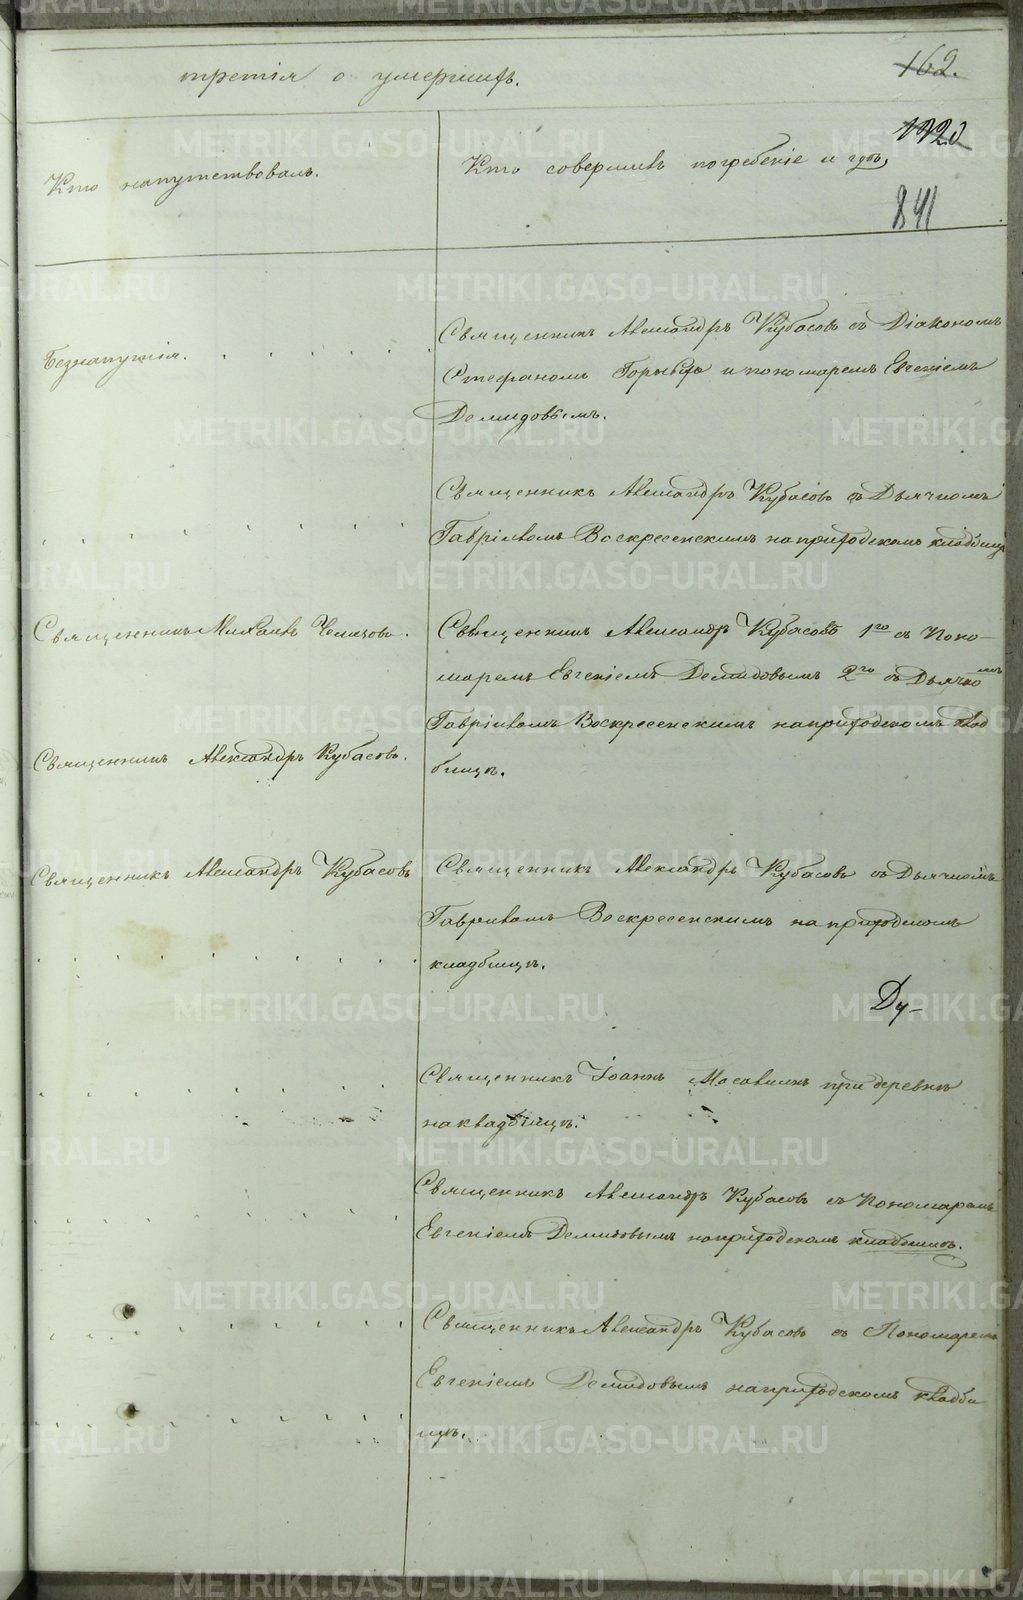 третія о умершихъ.
162.
1120
841
Кто напутствовалъ.
Кто совершилъ погребеніе и гдѣ,
Безнапутія.
Священникъ Александръ Кубасовъ съ Діакономъ
Стефаномъ и пономаремъ Евгеніемъ
Демидовымъ.
Священникъ Александръ Кубасовъ съ Дьячкомъ
Гавріиломъ Воскресенскимъ на приходскомъ кладбищѣ
Священникъ Михаилъ
Священникъ Александръ Кубасовъ 1го съ Поно-
маремъ Евгеніемъ Демидовымъ 2го съ Дьячкомъ
Гавріиломъ Воскресенскимъ на приходскомъ клад
Священникъ Александръ Кубасовъ.
бищѣ.
Священникъ Александръ Кубасовъ
Священникъ Александръ Кубасовъ съ Дьячкомъ
Гавріиломъ Воскресенскимъ на приходскомъ
кладбищѣ.
Ду-
Священникъ Іоаннъ при деревнѣ
на кладбищѣ.
Священникъ Александръ Кубасовъ съ Пономаремъ
Евгеніемъ Демидовымъ на приходскомъ кладбищѣ.
Священникъ Александръ Кубасовъ съ Пономаремъ
Евгеніемъ Демидовымъ на приходскомъ кладби
щѣ.
METRIKI.GASO-URAL.RU